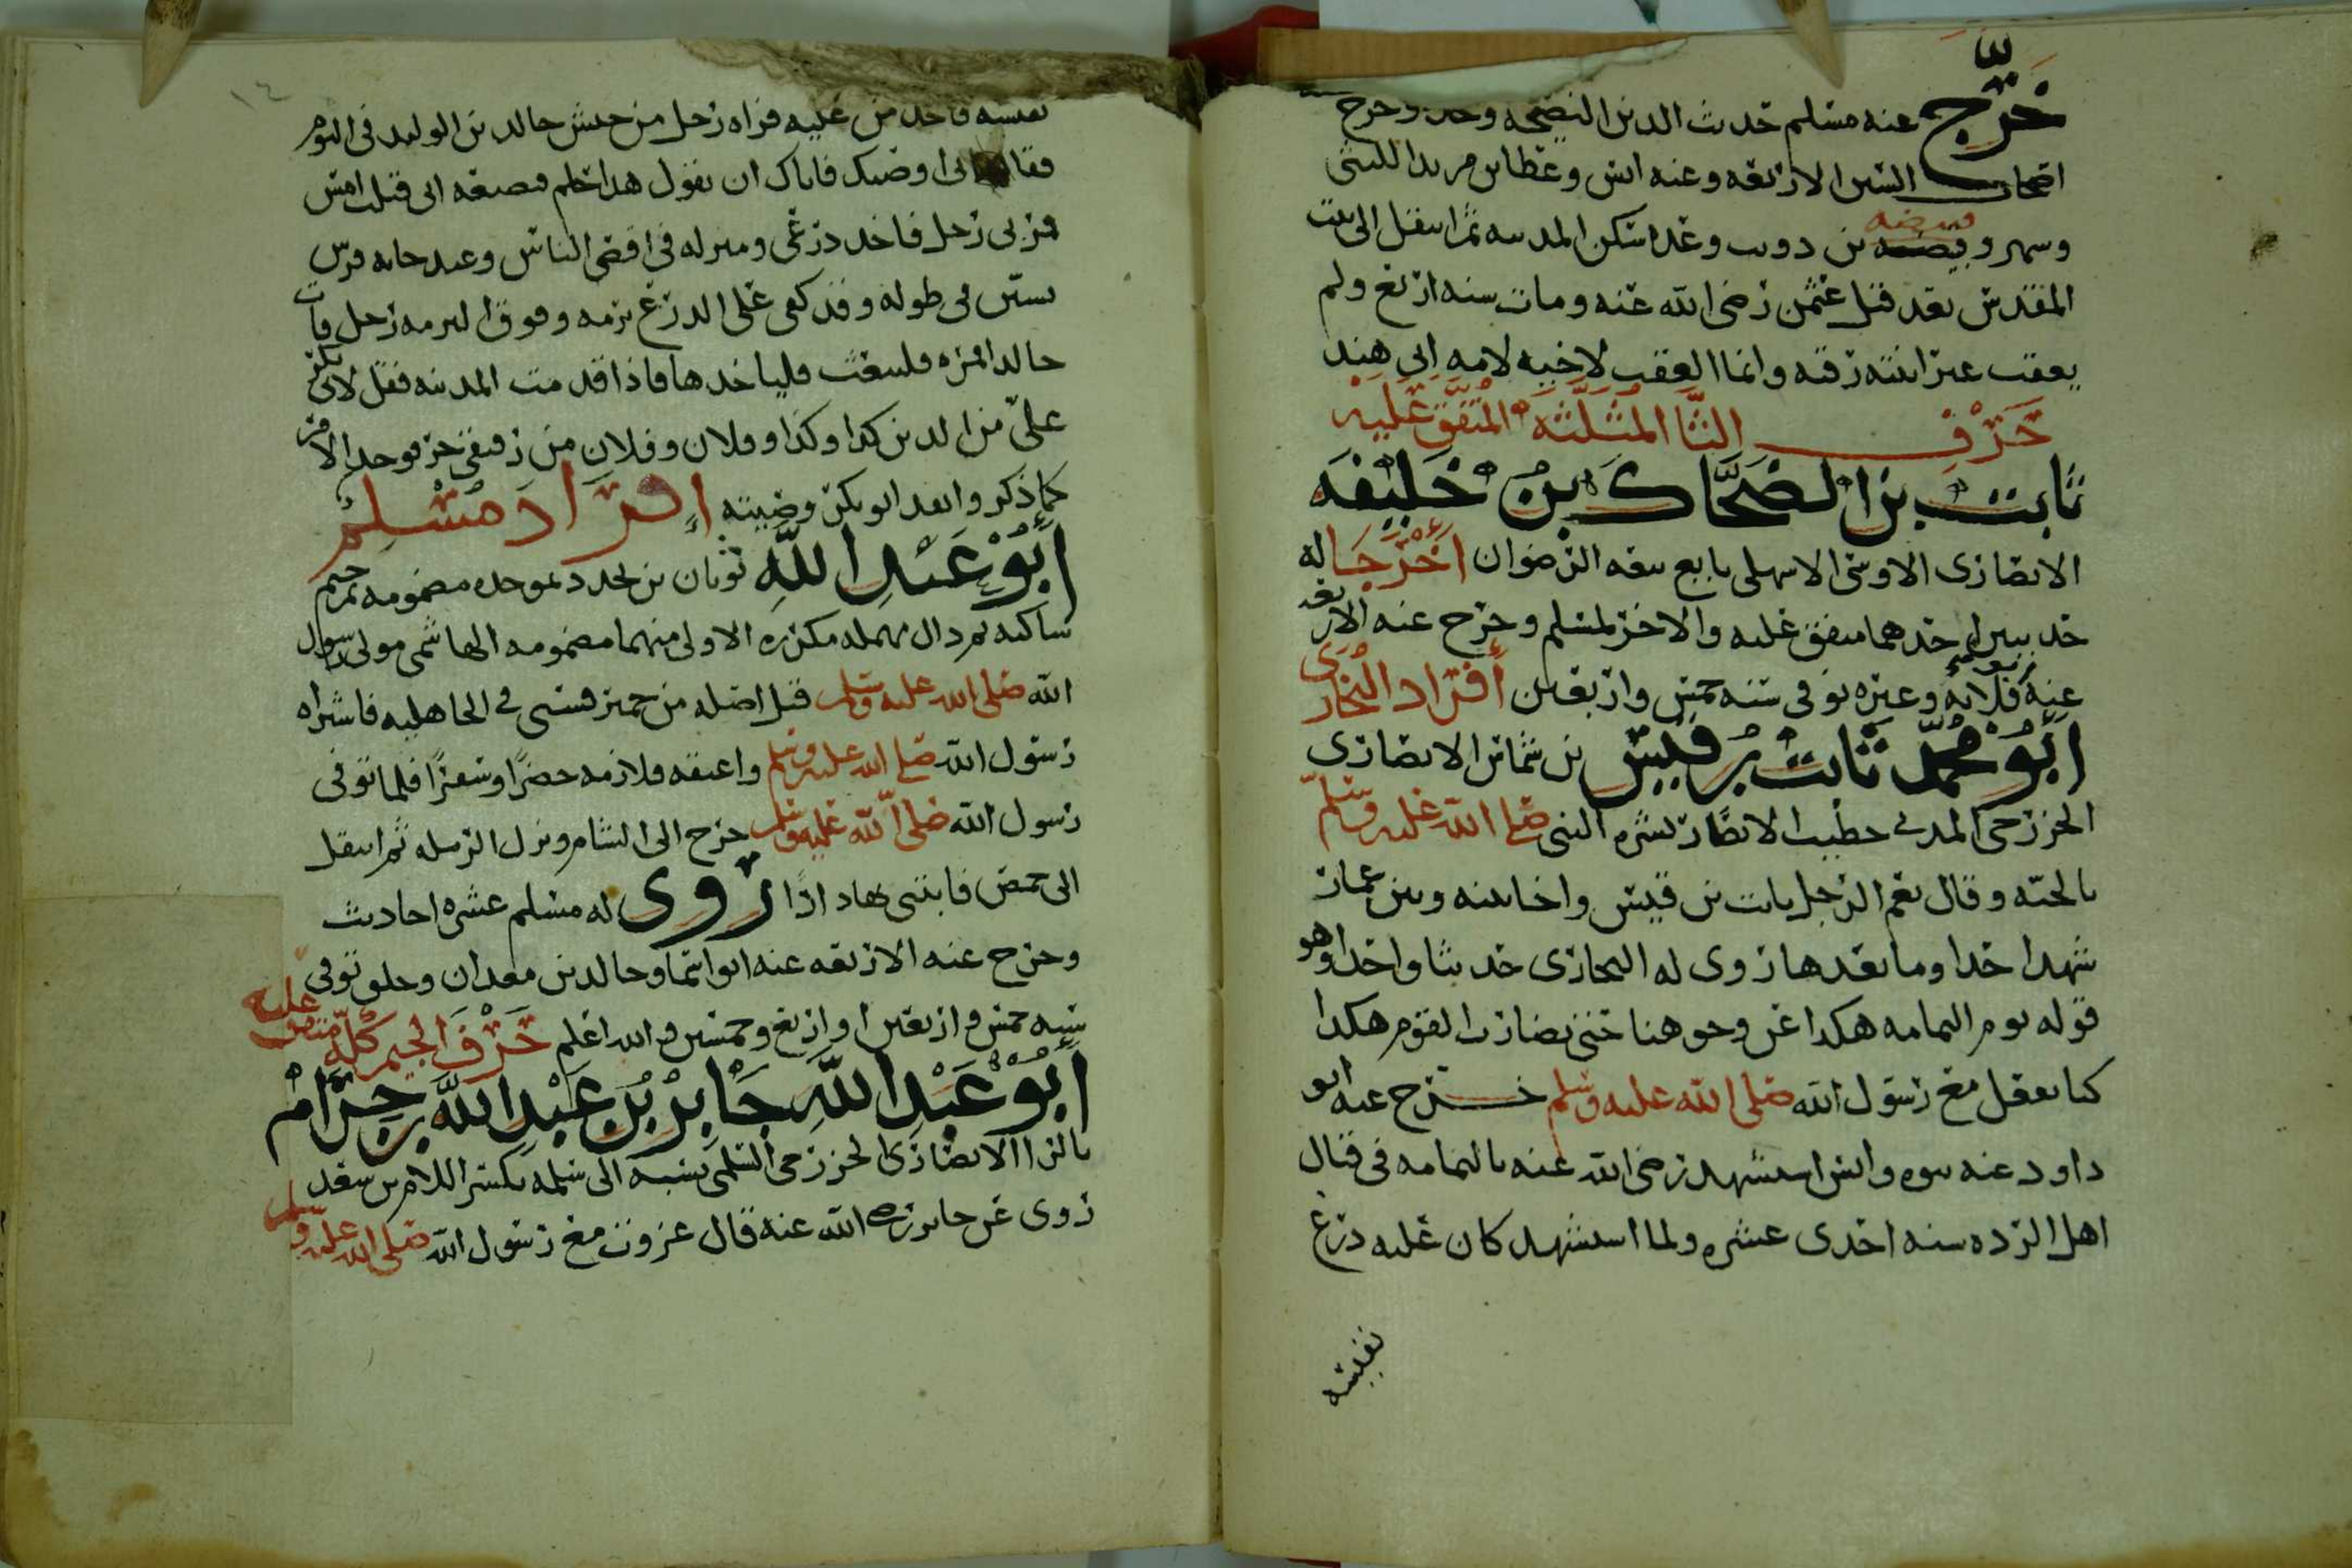 خرّج عنه مسلم حديث الدين النصيحة وحده وخرج
اصحاب السنن الاربعة وعنه انس وعطا بن يزيد الليثي
وشهر وقبيصة بن ذويب وغدا سكن المدينة ثم انتقل الى بيت
المقدس بعد قتل عثمن رضي الله عنه ومات سنه اربع ولم
يعقب غير ابنته رقية وانما العقب لاخيه لامه ابي هند
حَرْف الثَّا المُثَلَّثَه المُتَّفَق عَلَيْه
ثابت بن الضَّحَّاك بن خَليفَه
الانصاري الاوسي الاشهلي بايع بيعه الرضوان أَخْرَجَا له
حديثين احدهما متفق عليه والاخر لمسلم وخرج عنه الاربعه
عنه ابو قلابه وغيره توفي سنه خمس واربعين أفراد البُخَارِي
أَبُوْ مُحَمَّد ثَابت بن قيْس بن شماس الانصاري
الخزرجي المدني خطيب الانصار بشره النبي صلى الله عليه وسلم
بالجنه وقال نعم الرجل ثابت بن قيس واخا بينه وبين عمار
شهد احدا وما بعدها روى له البخاري حديثا واحدا وهو
قوله يوم اليمامه هكذا عن وجوهنا حتى نضارب القوم هكذا
كنا نفعل مع رسول الله صلى الله عليه وسلم خرج عنه ابو
داود عنه بنوه وانس استشهد رضي الله عنه باليمامه في قتال
اهل الرده سنه احدى عشره ولما استشهد كان عليه درع
نفيسه
١٤
نفيسه فاخذ من عليه فراه رجل من جيش خالد بن الوليد في النوم
فقال اني اوصيك فاياك ان تقول هذا حلم فتضيعه اني قتلت امس
فمر بي رجل فاخذ درعي ومنزله في اقصى الناس وعند خبايه فرس
يستن في طوله وقد كفى على الدرع برمه وفوق البرمه رحل فات
خالدا فمره فليبعث فلياخذها فاذا قدمت المدينه فقل لابي بكر
عليّ من الدين كذا وكذا وفلان وفلان من رقيقي حر فوجد الامر
كما ذكر وانفذ ابو بكر وصيته إفراد مسْلِم
أَبُوْ عَبْدِ اللَّهِ ثوبان بن بجدد بموحده مضمومه ثم جيم
ساكنه ثم دال مهمله مكرره الاولى منهما مضمومه الهاشمي مولى رسول
الله صلى الله عليه وسلم قيل اصله من حمير فسبي في الجاهليه فاشتراه
رسول الله صلى الله عليه وسلم واعتقه فلازمه حضرًا وسفرًا فلما توفي
رسول الله صلى الله عليه وسلم خرج الى الشام ونزل الرمله ثم انتقل
الى حمص فابتنى بها دارًا روى له مسلم عشره احاديث
وخرج عنه الاربعه عنه ابو اسما وخالد بن معدان وخلق توفي
سنه خمس واربعين او اربع وخمسين والله اعلم حَرْفُ الجيم كُلّه متفق عليه
أَبُوْ عَبْدِ اللَّهِ جَابِرُ بْنُ عَبْدِ اللَّه بن حِرَامْ
بالرا الانصاري الخزرجي السلمي نسبه الى سلمه بكسر اللام بن سعد
روى عن جابر رضي الله عنه قال غزوت مع رسول الله صلى الله عليه وسلم